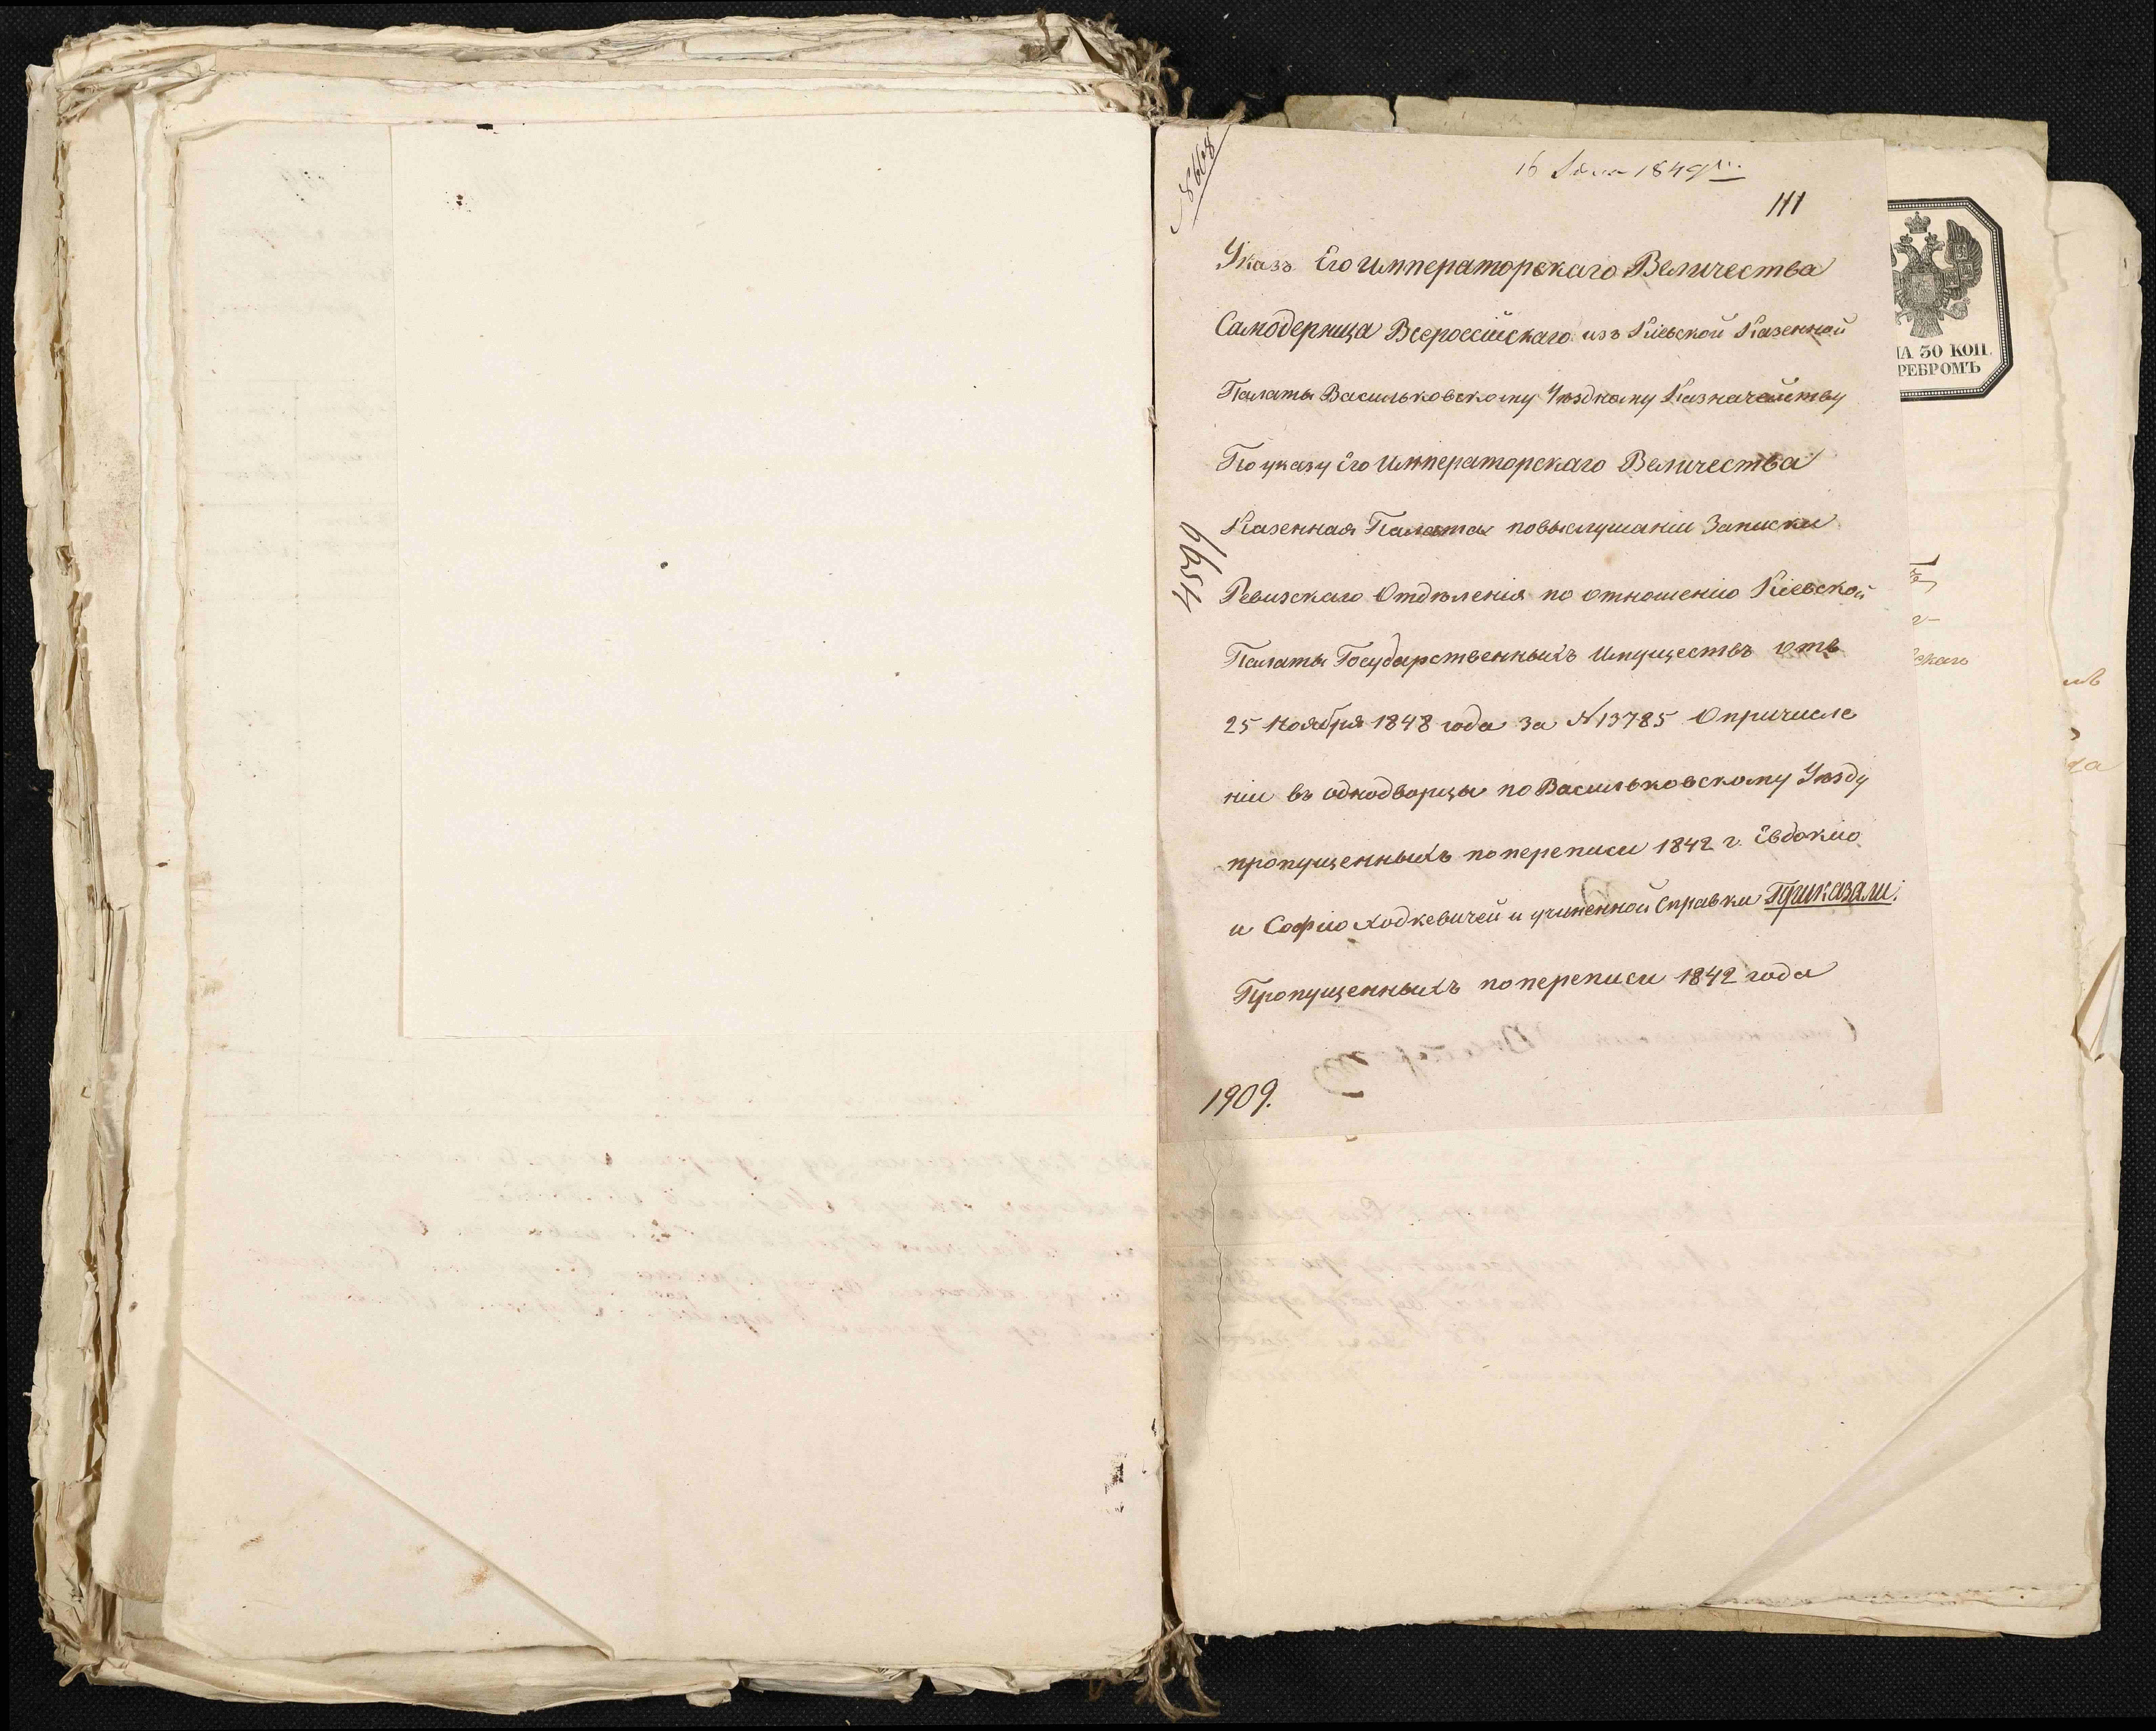 8608
16 1849 г.
111
Указъ Его Императорскаго Величества
Самодержца Всероссійскаго изъ Кіевской Казенной
Палаты Васильковскому Уѣздному Казначейству
По указу Его Императорскаго Величества
Казенная Палата по выслушаніи Записки
4599
Ревизскаго Отдѣленія по отношенію Кіевской
Палаты Государственныхъ Имуществъ отъ
25 Ноября 1848 года за №13785 О причисле
ніи въ однодворцы по Васильковскому Уѣзду
пропущенныхъ по переписи 1842 г. Евдокію
и Софію Ходкевичей и учиненной Справки Приказали:
Пропущенныхъ по переписи 1842 года
1909.
НА 30 КОП.
РЕБРОМЪ
скаго